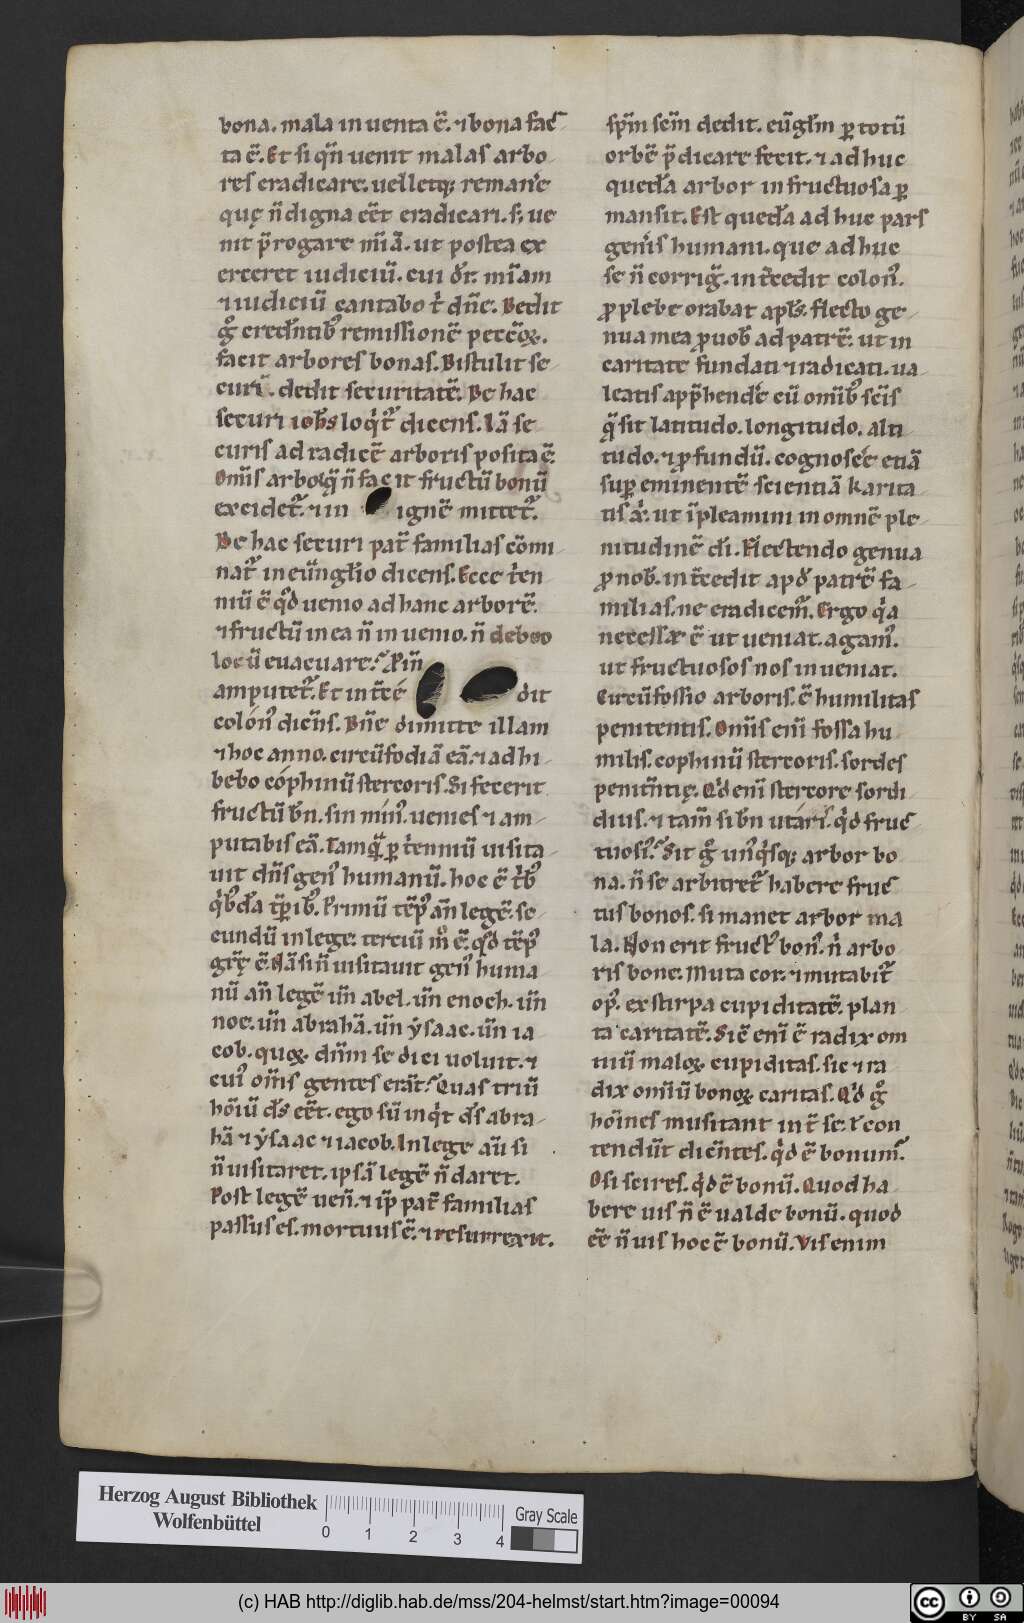 bona. mala inuenta ē. ⁊ bona fac
ta ē. Et si qn̄ uenit malas arbo
res eradicare. uelletq; remanˀe
quę n̄ digna eēt eradicari. s; ue
nit p̄rogare mīā. ut postea ex
erceret iudiciū. cui dr̄. mīam
⁊ iudiciū cantabo t̓ dn̄e. Dedit
gͦ credn̄tibꝰ remissionē peccōꝝ.
facit arbores bonas. Distulit se
curī. dedit securitatē. De hac
securi iohs̄ loq̓tꝰ dicens. Iā se
curis ad radicē arboris posita ē.
Om̄is arbor q̄ n̄ facit fructū bonū
excidet᷑. ⁊ in ignē mittet᷑.
De hac securi pat̄ familias cōmi
nat᷑ in eūnglio dicens. Ecce t̓en
niū ē qd̓ uenio ad hanc arborē.
⁊ fructū in ea n̄ inuenio. n̄ debeo
locū euacuare.
amputet᷑. Et int̄cē dit
colonꝰ dicēs. Dn̄e dimitte illam
⁊ hoc anno. circūfodiā eā. ⁊ adhi
bebo cophinū stercoris. Si fecerit
fructū bn̄. sin minꝰ. uenies ⁊ am
putabis eā. Tamq̄ p t̓enniū uisita
uit dn̄s genꝰ humanū. hoc ē t̓bꝰ
q̓bd̄a tp̄ibꝰ. Primū tēpꝰ an̄ legē. se
cundū in lege. terciū m̊ ē. qd̓ tēpꝰ
grę̄ ē. Nā si n̄ uisitauit genꝰ huma
nū an̄ legē un̄ abel. un̄ enoch. un̄
noe. un̄ abrahā. un̄ ysaac. un̄ ia
cob. quoꝝ dn̄m se dici uoluit. ⁊
cuiꝰ om̄s gentes erāt. Quas triū
hōiū ds̄ eēt. ego sū inq̓t ds̄ abra
hā ⁊ ysaac ⁊ iacob. In lege aū si
n̄ uisitaret. ipsā legē n̄ daret.
Post legē uen̄. ⁊ ip̄ pat̄ familias
passus es. mortuus ē. ⁊ resurrexit.
sp̄m sc̄m dedit. eūglm̄ p totū
orbē p̄dicare fecit. ⁊ adhuc
quedā arbor infructuosa p
mansit. Est quedā adhuc pars
gen̓is humani. que adhuc
se n̄ corriḡ. int̄cedit colonꝰ.
ꝓ plebe orabat apl̄s. flecto ge
nua mea ꝓ uob̄ ad patrē. ut in
caritate fundati ⁊ radicati. ua
leatis app̄hendē cū omībꝰ scīs
q̄ sit latitudo. longitudo. alti
tudo. ⁊ ꝓfundū. cognoscē etiā
sup eminentē scientiā karita
tis x̄. ut īpleamini in omnē ple
nitudinē dī. Flectendo genua
ꝓ nob̄. int̄cedit apd̓ patrē fa
milias. ne eradicem᷑. Ergo q̓a
necessæ ē ut ueniat. agamꝰ.
ut fructuosos nos inueniat.
Circūfossio arboris. ē humilitas
penitentis. Om̄is enī fossa hu
milis. cophinū stercoris. sordes
penitn̄tię. Qd̓ enī stercore sordi
dius. ⁊ tam̄ si bn̄ utaris. qd̓ fruc
tuosiꝰ. Sit gͦ unꝰq̓sq; arbor bo
na. n̄ se arbitret᷑ habere fruc
tus bonos. si manet arbor ma
la. Non erit fructꝰ bonꝰ. n̓ arbo
ris bone. Muta cor. ⁊ mutabit᷑
opꝰ. exstirpa cupiditatē. plan
ta caritatē. Sic enī ē radix om
niū maloꝝ cupiditas. sic ⁊ ra
dix omīū bonoꝝ caritas. Qd̓ gͦ
hoīnes musitant int̄ se. ł con
tendūt dicn̄tes. qd̓ ē bonum.
O si scires. qd̓ ē bonū. Quod ha
bere uis n̄ ē ualde bonū. quod
eē n̄ uis hoc ē bonū. Vis enim
Herzog August Bibliothek
Wolfenbüttel
0 1 2 3 4
Gray Scale
(c) HAB http://diglib.hab.de/mss/204-helmst/start.htm?image=00094
cc BY SA